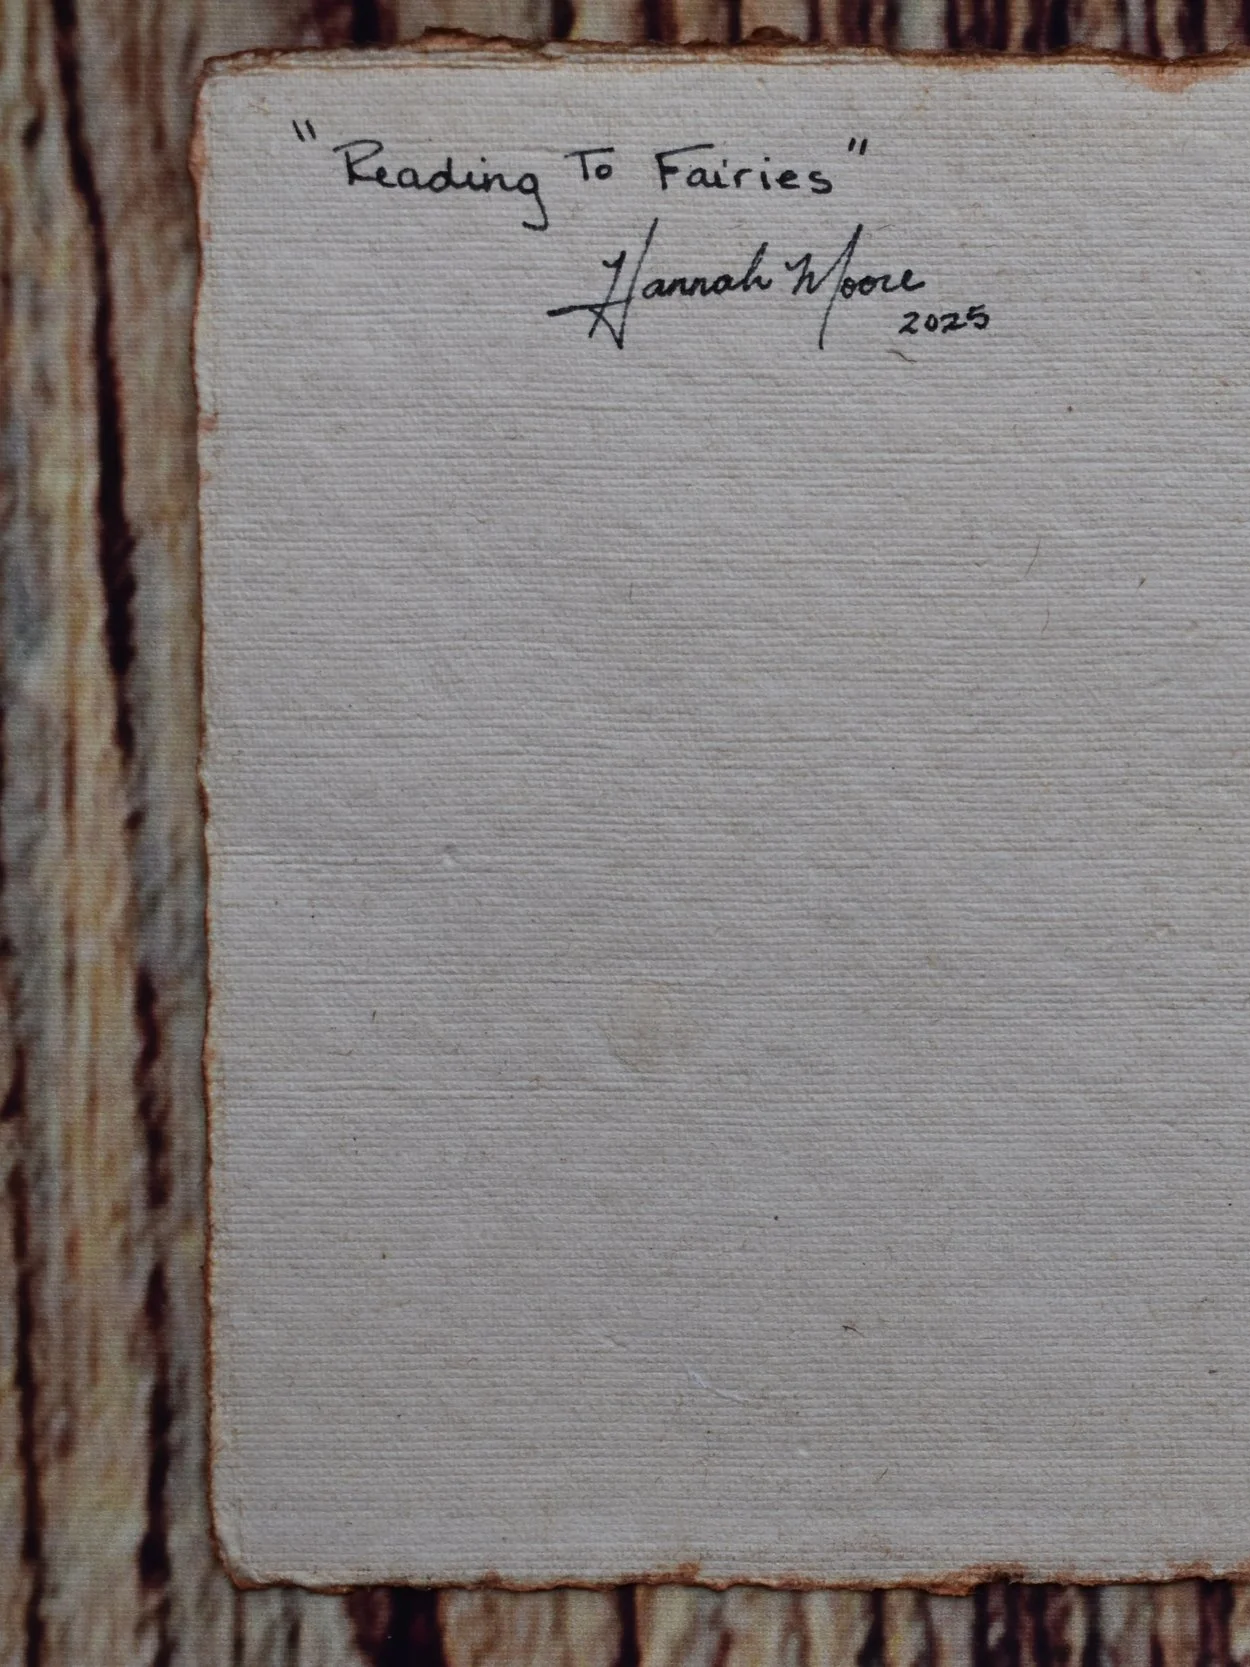 "Reading To Fairies"
Hannah Moore
2025